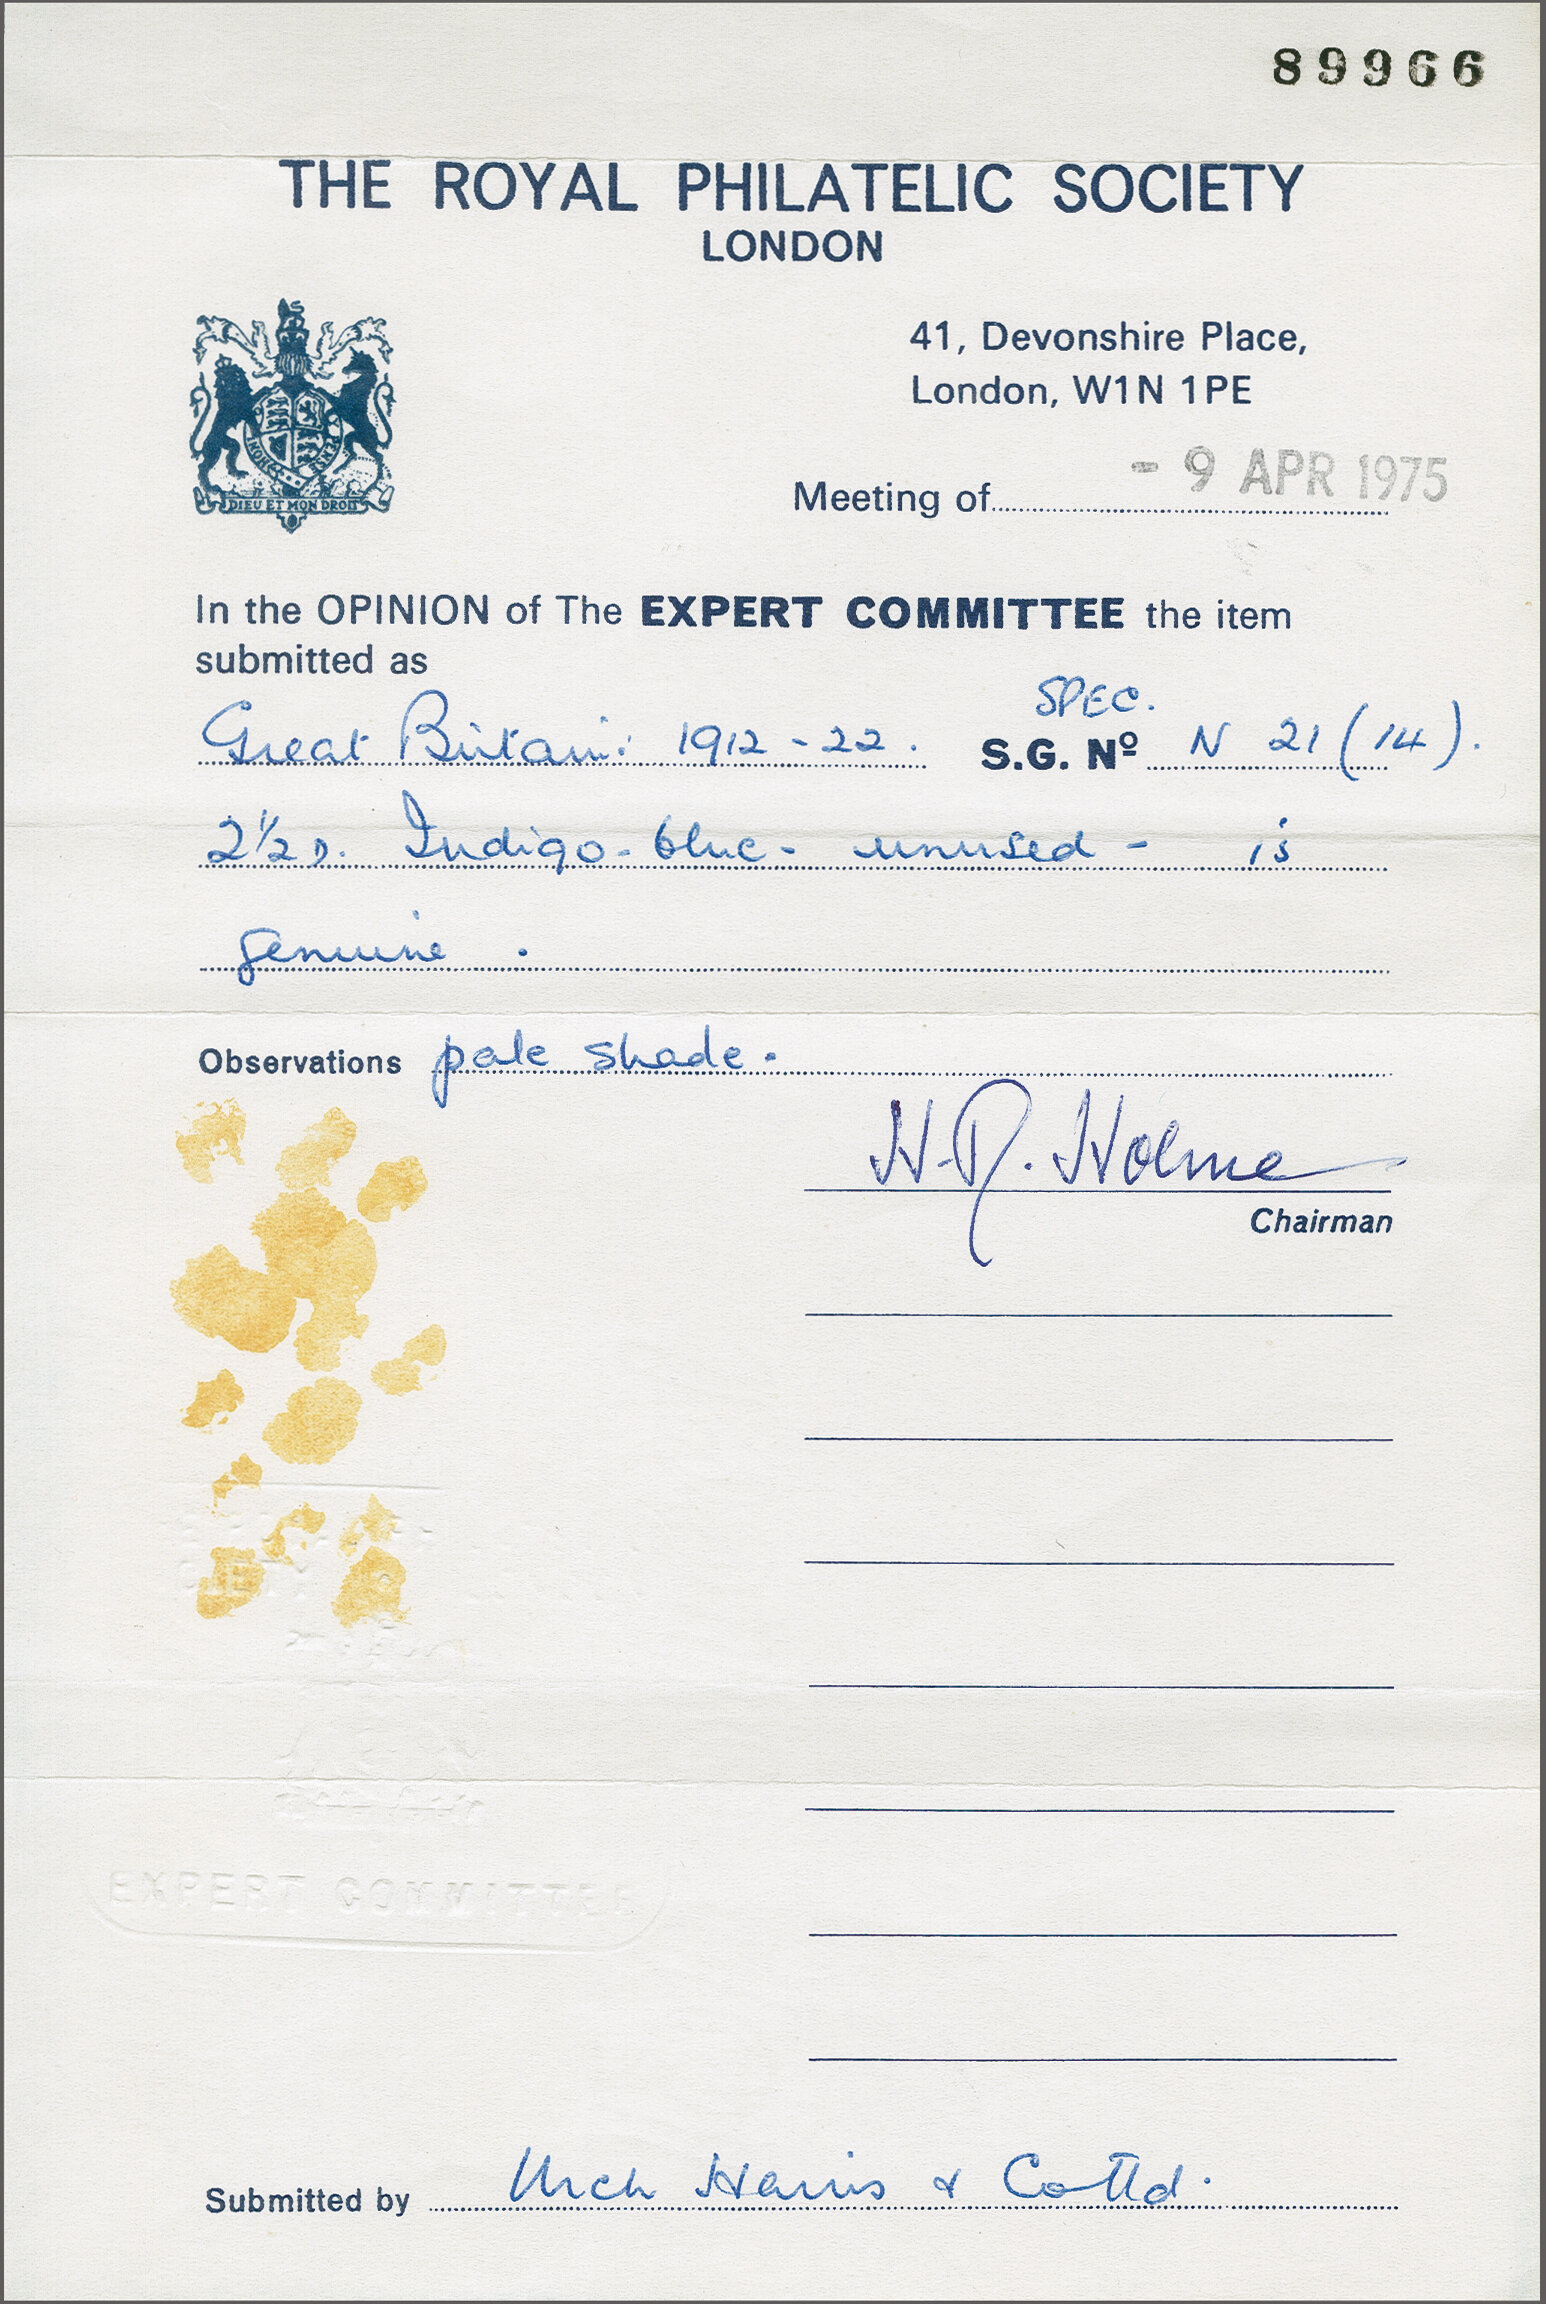 89966
THE ROYAL PHILATELIC SOCIETY
LONDON
41, Devonshire Place,
London, W1N 1PE
DIEU ET MON DROIT
Meeting of - 9 APR 1975
In the OPINION of The EXPERT COMMITTEE the item
submitted as
SPEC.
Great Britain: 1912-22. S.G. Nº N 21 (14).
2½D. Indigo-blue - unused - is
genuine.
Observations pale shade.
H.R. Holme
Chairman
EXPERT COMMITTEE
Submitted by Urch Harris & Co Ltd.